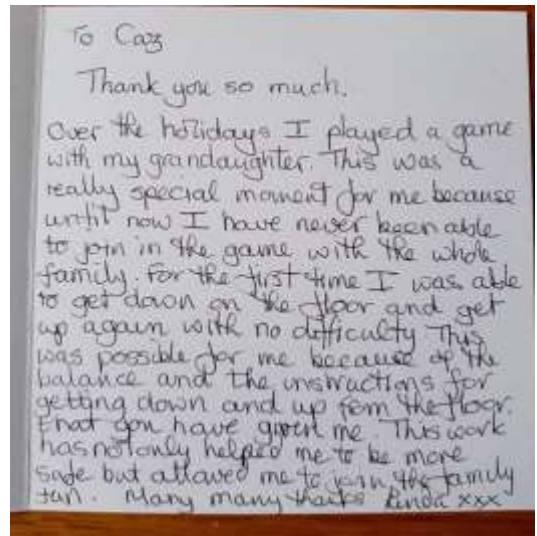 To Caz
Thank you so much.
Over the holidays I played a game
with my grandaughter. This was a
really special moment for me because
until now I have never been able
to join in the game with the whole
family. For the first time I was able
to get down on the floor and get
up again with no difficulty This
was possible for me because of the
balance and the instructions for
getting down and up from the floor.
that you have given me. This work
has not only helped me to be more
safe but allowed me to join the family
fun. Many many thanks Linda xxx